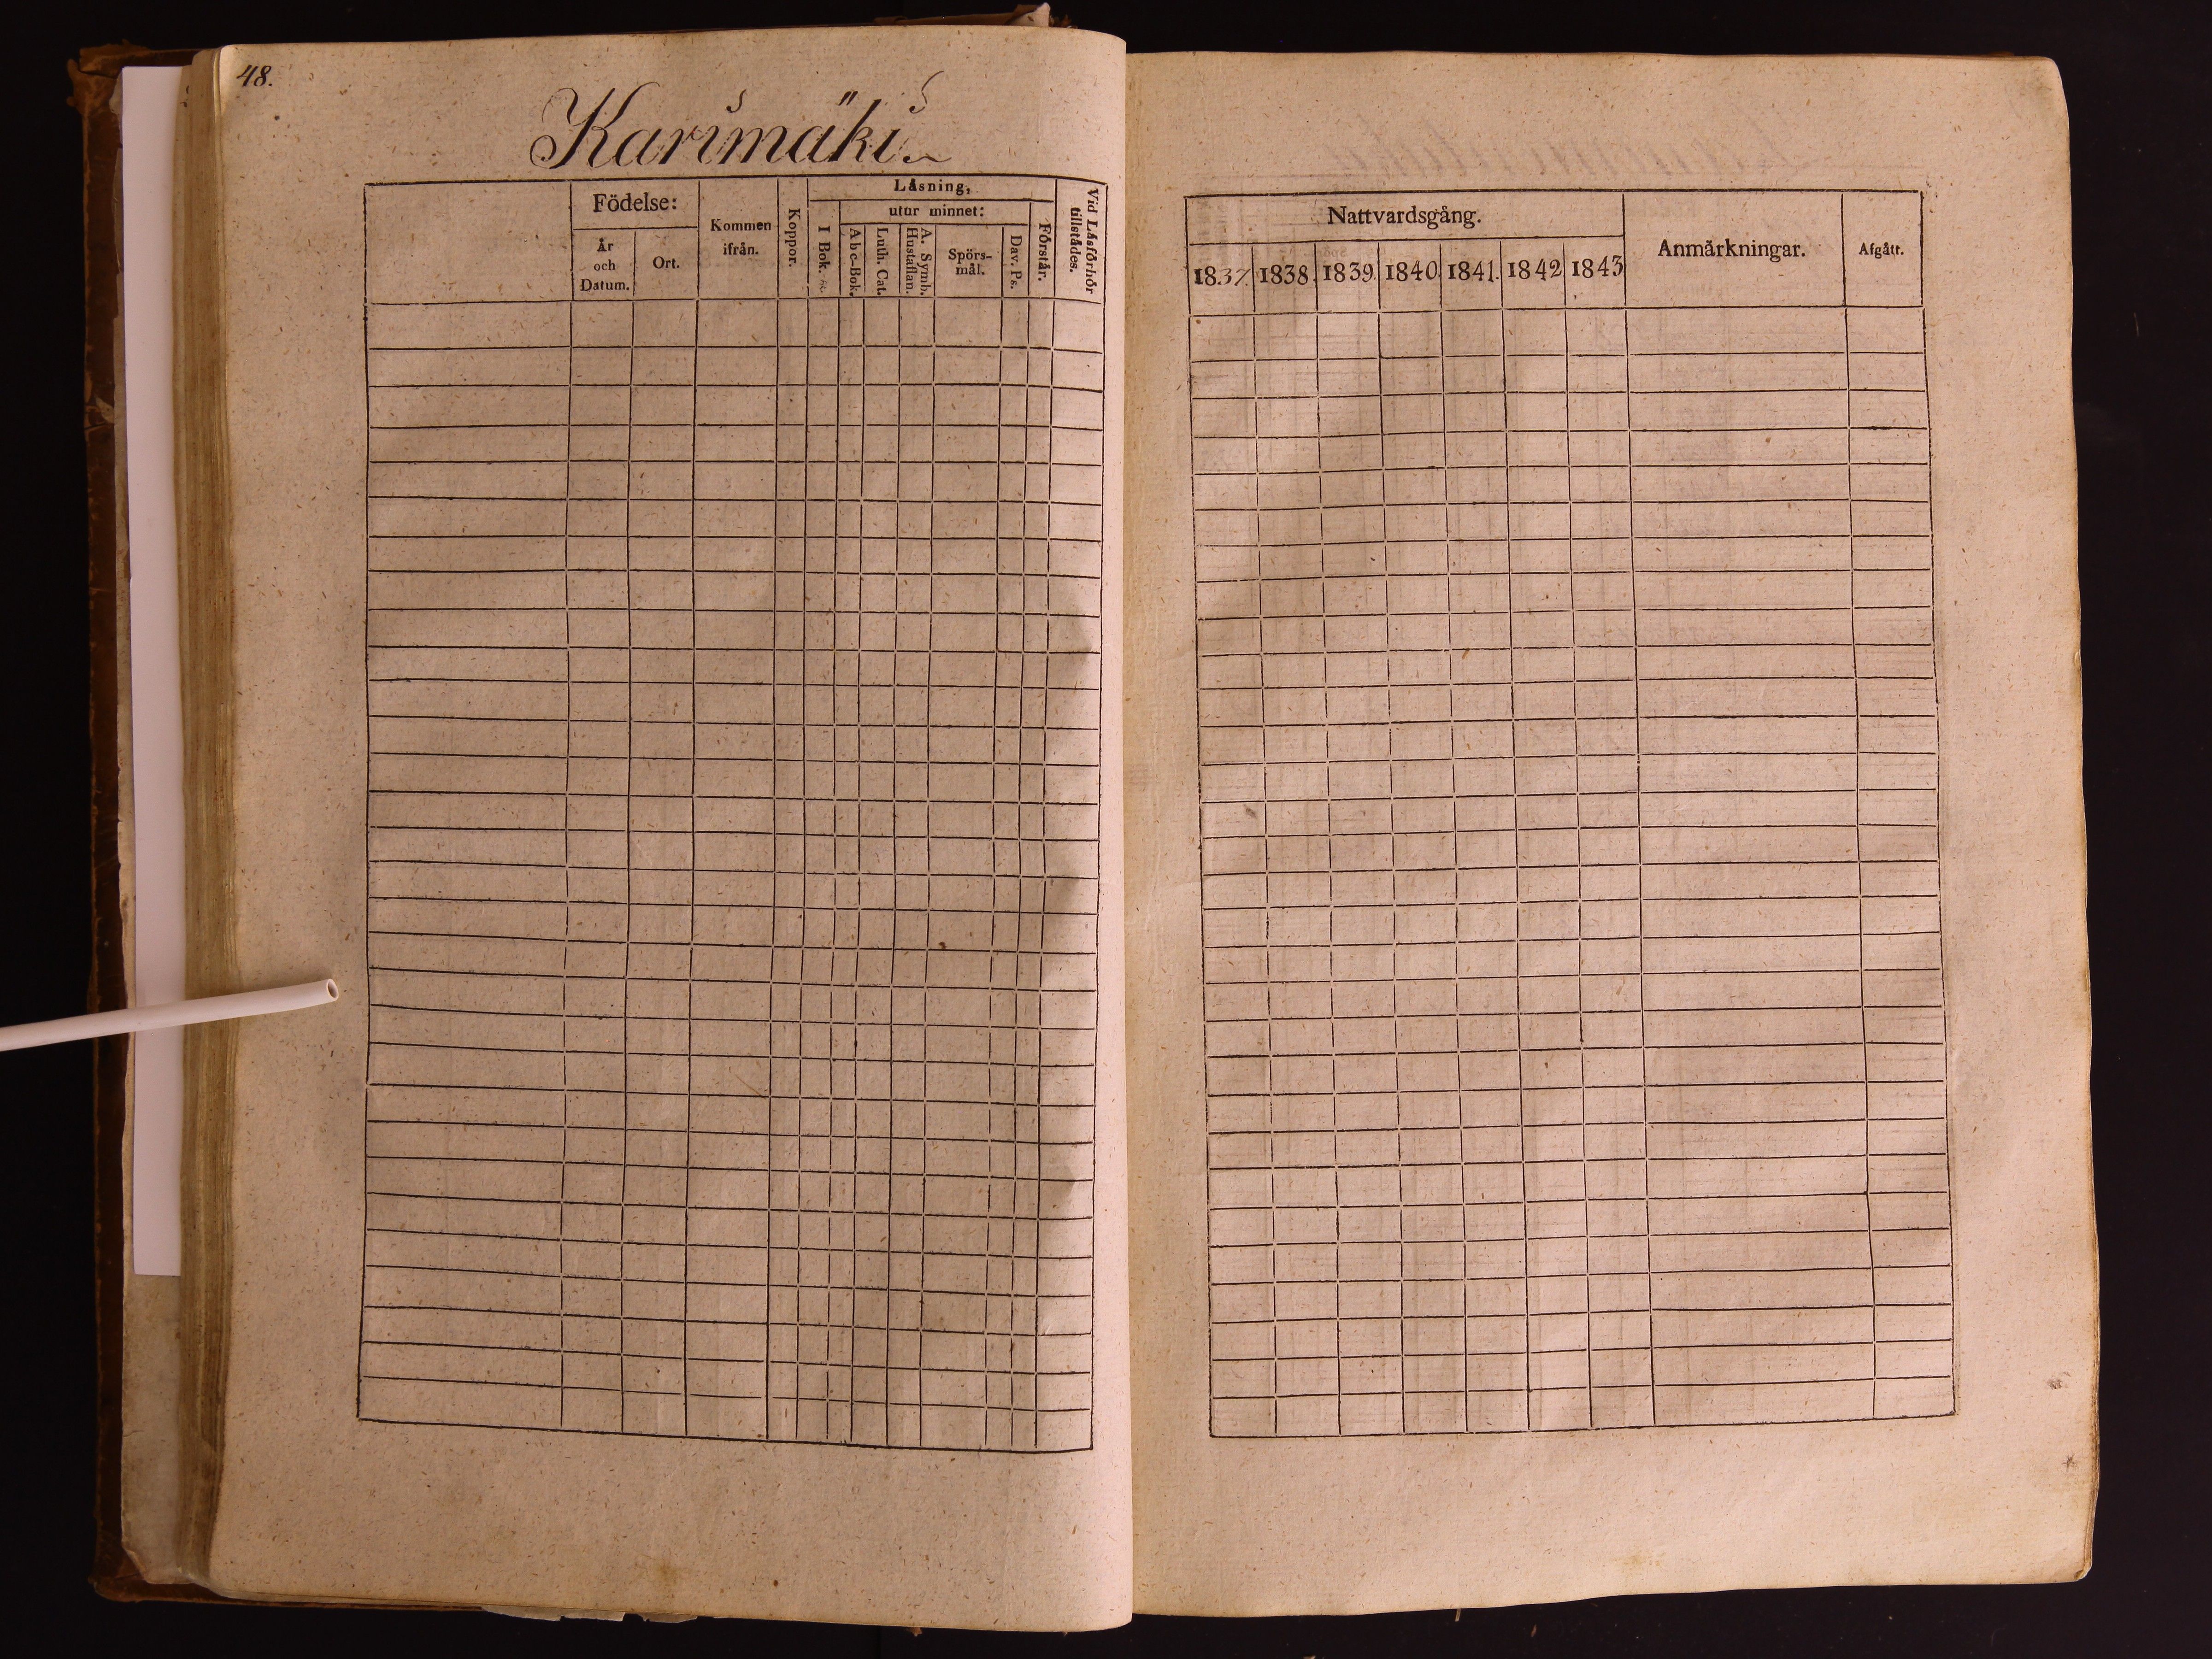 48.
Karimäki.
Födelse:
År och Datum.
Ort.
Kommen ifrån.
Koppor.
Läsning,
I Bok.
utur minnet:
Abc-Bok.
Luth. Cat.
A. Symb. Hustaflan.
Spörs-mål.
Dav. Ps.
Förstår.
Vid Läsförhör tillstådes.
Nattvardsgång.
1837. 1838. 1839. 1840. 1841. 1842 1843
Anmärkningar.
Afgått.